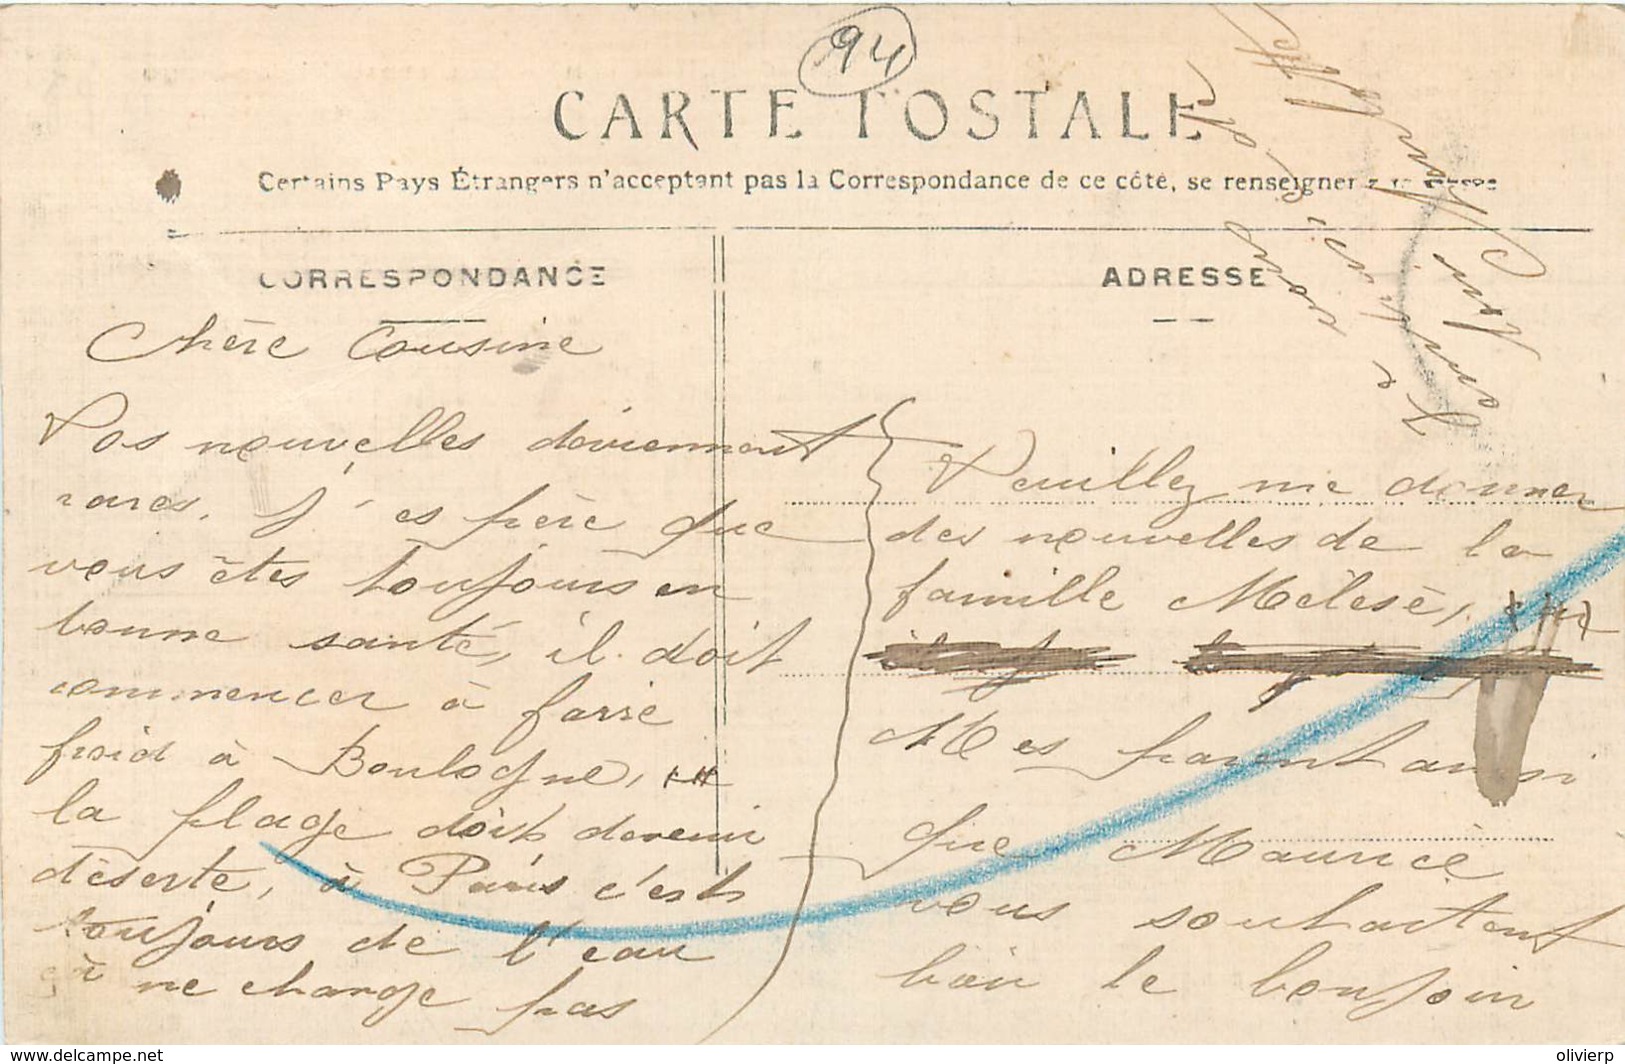 94
CARTE POSTALE
Certains Pays Étrangers n'acceptent pas la Correspondance de ce côté, se renseigner à la Poste
CORRESPONDANCE
Chère Cousine
Vos nouvelles deviennent
rares. J'espère que
vous êtes toujours en
bonne santé, il doit
commencer à faire
froid à Boulogne,
la plage doit devenir
déserte, à Paris c'est
toujours de l'eau
çà ne change pas
ADRESSE
Veuillez me donner
des nouvelles de la
famille Mélesè,
Mes parent ainsi
que Maurice
vous souhaitent
bien le bonjoin